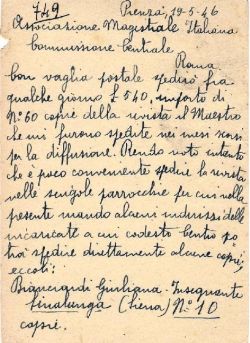 749
Pienza, 19-5-46
Associazione Magistrale Italiana
Commissione Centrale
Roma
Con vaglia postale spedirò fra
qualche giorno £ 540, importo di
N.° 60 copie della rivista il Maestro
che mi furono spedite nei mesi scorsi
per la diffusione. Rendo noto intanto
che è poco conveniente spedire la rivista
nelle singole parrocchie per cui nella
presente mando alcuni indirizzi delle
incaricate a cui codesto Centro po-
trà spedire direttamente alcune copie
eccoli:
Bianciardi Giuliana - Insegnante
Sinalunga (Siena) N.° 10
copie.